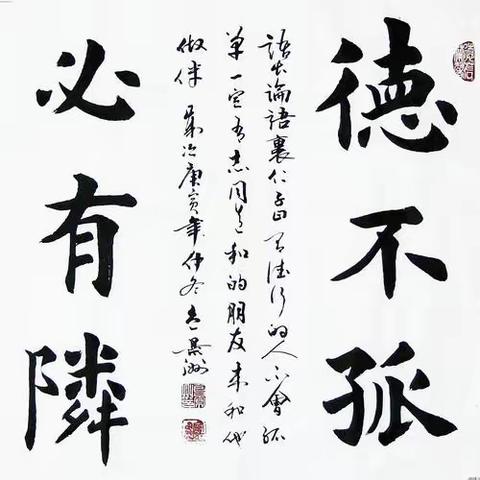 徳不孤
語出論語裏仁有德行的人不會孤
單一定有志同道和的朋友來和他
做伴 歲次庚寅年仲冬景洲
必有隣